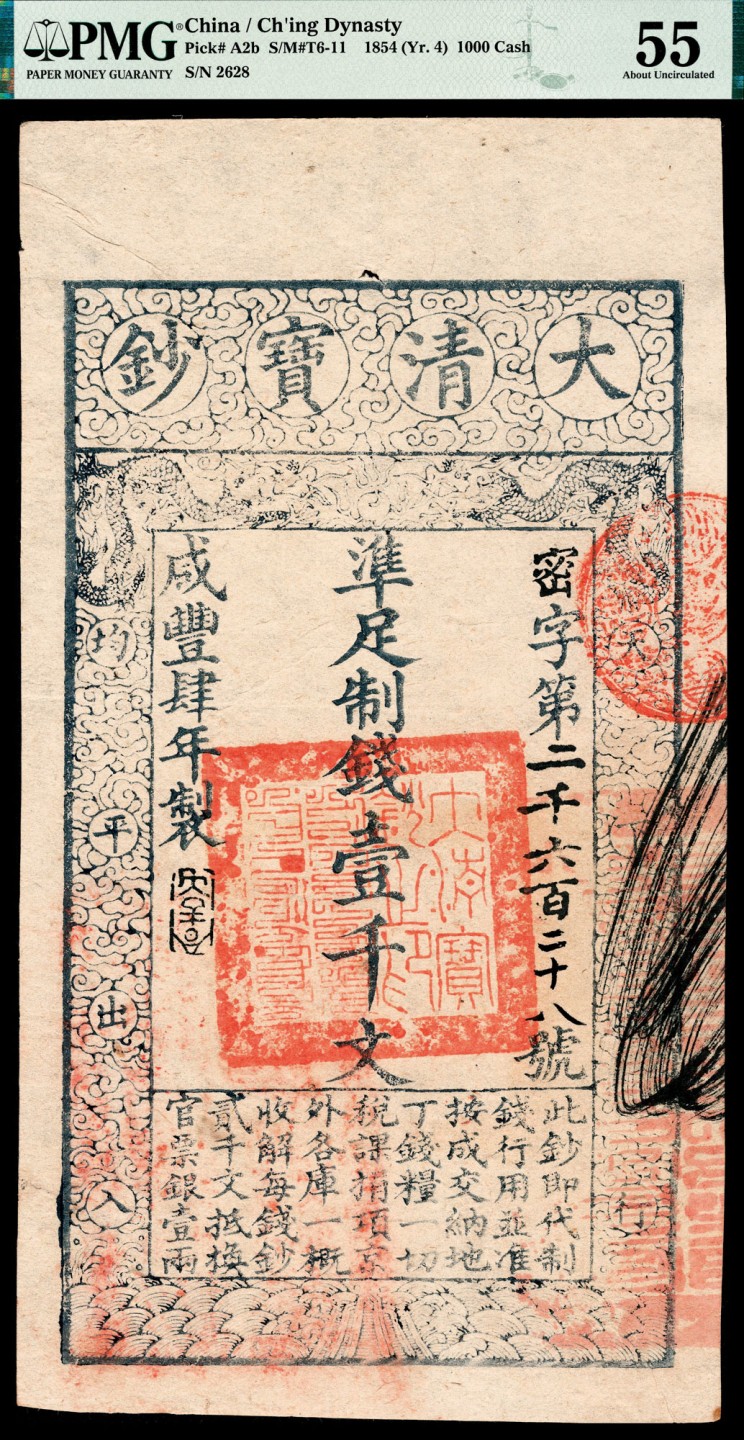 PMG
PAPER MONEY GUARANTY
China / Ch'ing Dynasty
Pick# A2b S/M#T6-11 1854 (Yr. 4) 1000 Cash
S/N 2628
55
About Uncirculated
大清寶鈔
天
行
密字第二千六百二十八號
準足制錢壹千文
咸豐肆年製
均平出入
大清寶鈔之印
此鈔即代制
錢行用並准
按成交納地
丁錢糧一切
稅課捐項京
外各庫一概
收解每錢鈔
貳千文抵換
官票銀壹兩